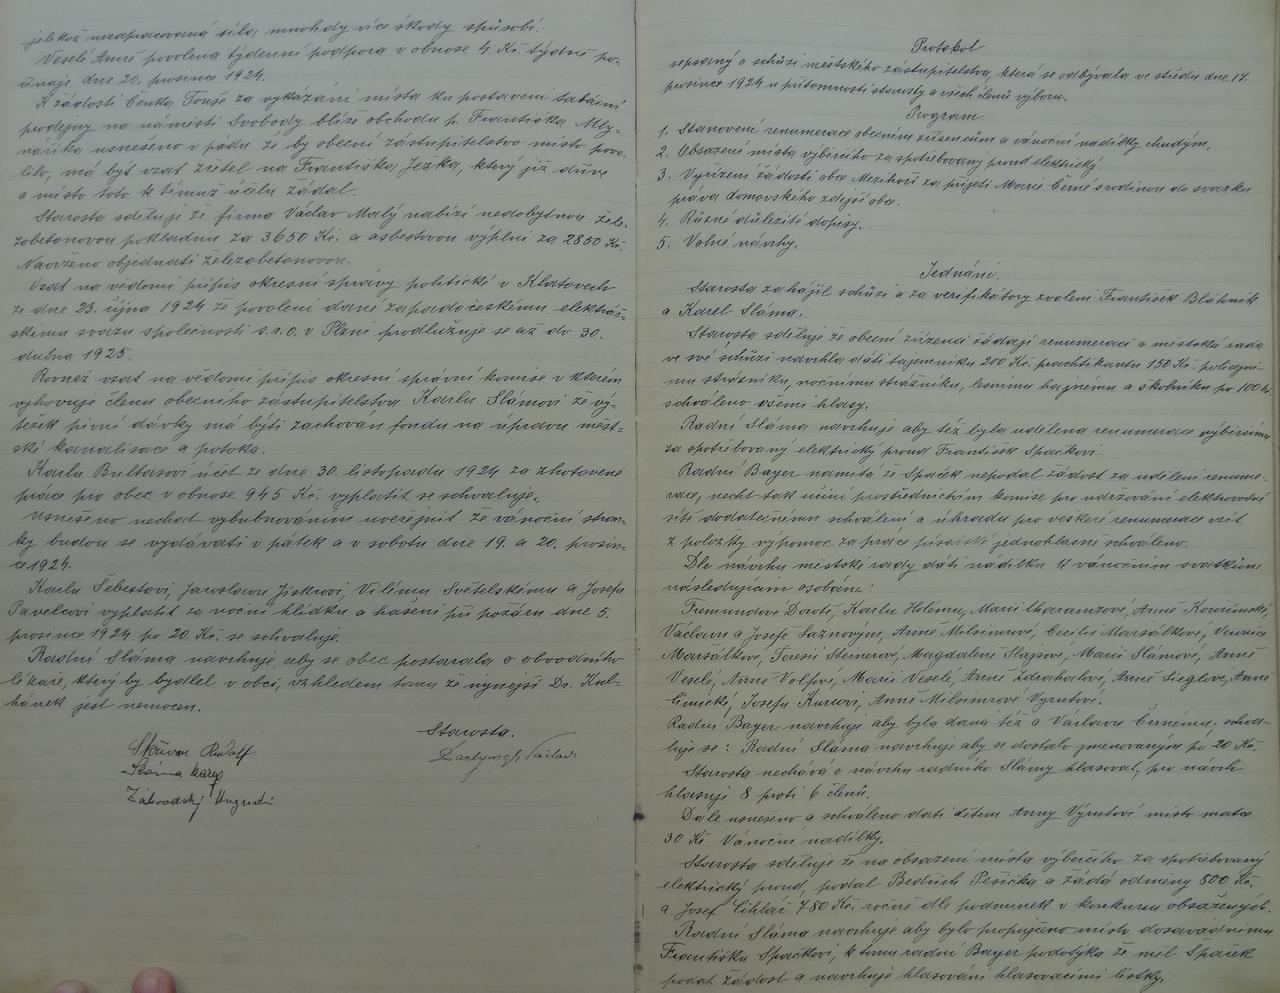 jelikož nezapracovaná síla mnohdy více škody způsobí.
Veselé Anně povolena týdenní podpora v obnose 4 Kč. týdně po-
čínaje dne 20. prosince 1924.
K žádosti Čeňka Touše za vykázání místa ku postavení tabáční
prodejny na náměstí Svobody blíže obchodu p. Františka Mly-
naříka usneseno v pádu že by obecní zástupitelstvo místo povo-
lilo, má být vzat zřetel na Františka Jezka, který již dříve
o místo toto k témuž účelu žádal.
Starosta sděluje že firma Václav Malý nabízí nedobytnou žele-
zobetonovou pokladnu za 3650 Kč. a asbestovou výplní za 2850 Kč.
Navrženo objednati železobetonovou.
Vzat na vědomí přípis okresní správy politické v Klatovech
ze dne 23. října 1924 že povolení dané západočeskému elektrář-
skému svazu společnosti s.r.o. v Plzni prodlužuje se až do 30.
dubna 1925.
Rovněž vzat na vědomí přípis okresní správní komise v kterém
vyhovuje členu obecního zástupitelstva Karlu Slámovi že vý-
těžek pivní dávky má býti zachován fondu na úpravu měst-
ské kanalisace a potoka.
Karlu Bultasovi účet ze dne 30. listopadu 1924 za zhotovené
práce pro obec v obnose 945 Kč. vyplatit se schvaluje.
Usneseno nechat vybubnováním uveřejnit že vánoční strom-
ky budou se vydávati v pátek a v sobotu dne 19. a 20. prosin-
ce 1924.
Karlu Šebestovi, Jaroslavu Jiskrovi, Vilému Světelskému a Josefu
Pavelcovi vyplatit za noční hlídku a hašení při požáru dne 5.
prosince 1924 po 20 Kč. se schvaluje.
Radní Sláma navrhuje, aby se obec postarala o obvodního
lékaře, který by bydlel v obci, vzhledem tomu že nynější Dr. Kul-
hánek jest nemocen.
Starosta.
Skřivan Rudolf
Sláma Karel
Závodský
Protokol
sepsaný o schůzi městského zástupitelstva, která se odbývala ve středu dne 17.
prosince 1924 u přítomnosti starosty a všech členů výboru.
Program
1. Stanovení renumerace obecním zřízencům a vánoční nadílky chudým.
2. Obsazení místa výběrčího za spotřebovaný proud elektrický.
3. Vyřízení žádosti obce Mezihoří za přijetí Marie Černé s rodinou do svazku
práva domovského zdejší obce.
4. Různé důležité dopisy.
5. Volné návrhy.
Jednání.
Starosta zahájil schůzi a za verifikátory zvoleni František Bláhník
a Karel Sláma.
Starosta sděluje že obecní zřízenci žádají renumeraci a městská rada
ve své schůzi navrhla dáti tajemníku 200 Kč. prachtikantu 150 Kč. policejní-
mu strážníku, nočnímu strážníku, lesnímu hajnému a školníku po 100 Kč.
schváleno všemi hlasy.
Radní Sláma navrhuje aby též byla udělena renumerace výběrčímu
za spotřebovaný elektrický proud František Spačkovi.
Radní Bayer namítá že Spaček nepodal žádost za udělení renume-
race, nechť tak učiní prostřednictvím komise pro udržování elektrovodní
sítě dodatečnému schválení a úhradu pro veškeré renumerace vzít
z položky výpomoc za práce písařské jednohlasně schváleno.
Dle návrhu městské rady dáti nadílku k vánočním svátkům
následujícím osobám:
Karlu Holému, Marii Anně
Václavu a Josefě Anně Milsimrové, Cecilii Maršálkové, Veronice
Maršálkové, Teresii Steinerové, Magdaleně Marii Slámové, Anně
Veselé, Anně Volfové, Marii Veselé, Anně Zdrahalové, Anně Sieglové, Anně
Josefu Anně Milsimrové
Radní Bayer navrhuje aby byla dána též a Václavu Černému, schva-
luje se: Radní Sláma navrhuje aby se dostalo jmenovaným po 20 Kč.
Starosta nechává o návrhu radního Slámy hlasovat, pro návrh
hlasuje 8 proti 6 členů.
Dále usneseno a schváleno dáti dětem Anny Výrutové místo matce
30 Kč. Vánoční nadílky.
Starosta sděluje že na obsazení místa výběrčího za spotřebovaný
elektrický proud, podal Bedřich Pešička a žádá odměny 800 Kč.
a Josef Cihlář 780 Kč. ročně dle podmínek v konkursu obsažených.
Radní Sláma navrhuje aby bylo propůjčeno místo dosavádnímu
Františku Spačkovi, k tomu radní Bayer podotýká že měl Spaček
podat žádost a navrhuje hlasování hlasovacími lístky.